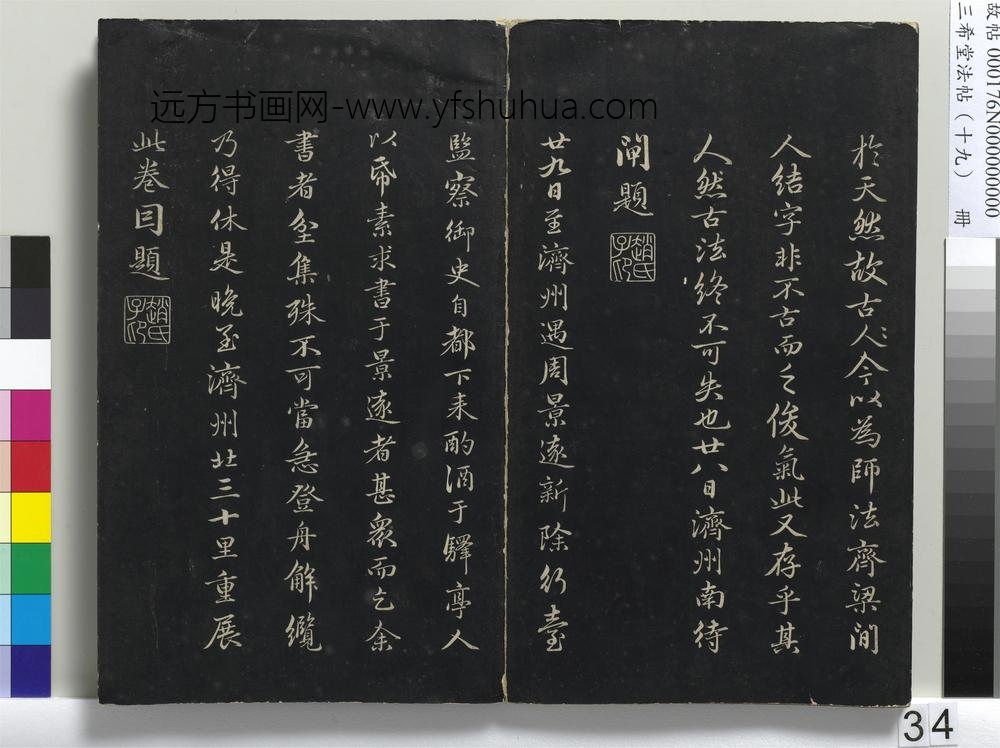 於天然故古人々今以為師法齊梁間
人結字非不古而乏俊氣此又存乎其
人然古法終不可失也廿八日濟州南待
閘題
趙氏子印
廿九日至濟州遇周景遠新除行臺
監察御史自都下来酌酒于驛亭人
以帋素求書于景遠者甚衆而乞余
書者坌集殊不可當急登舟解纜
乃得休是晚至濟州北三十里重展
此卷因題
趙氏子印
远方书画网-www.yfshuhua.com
故帖 000176N000000000
三希堂法帖（十九） 冊
34